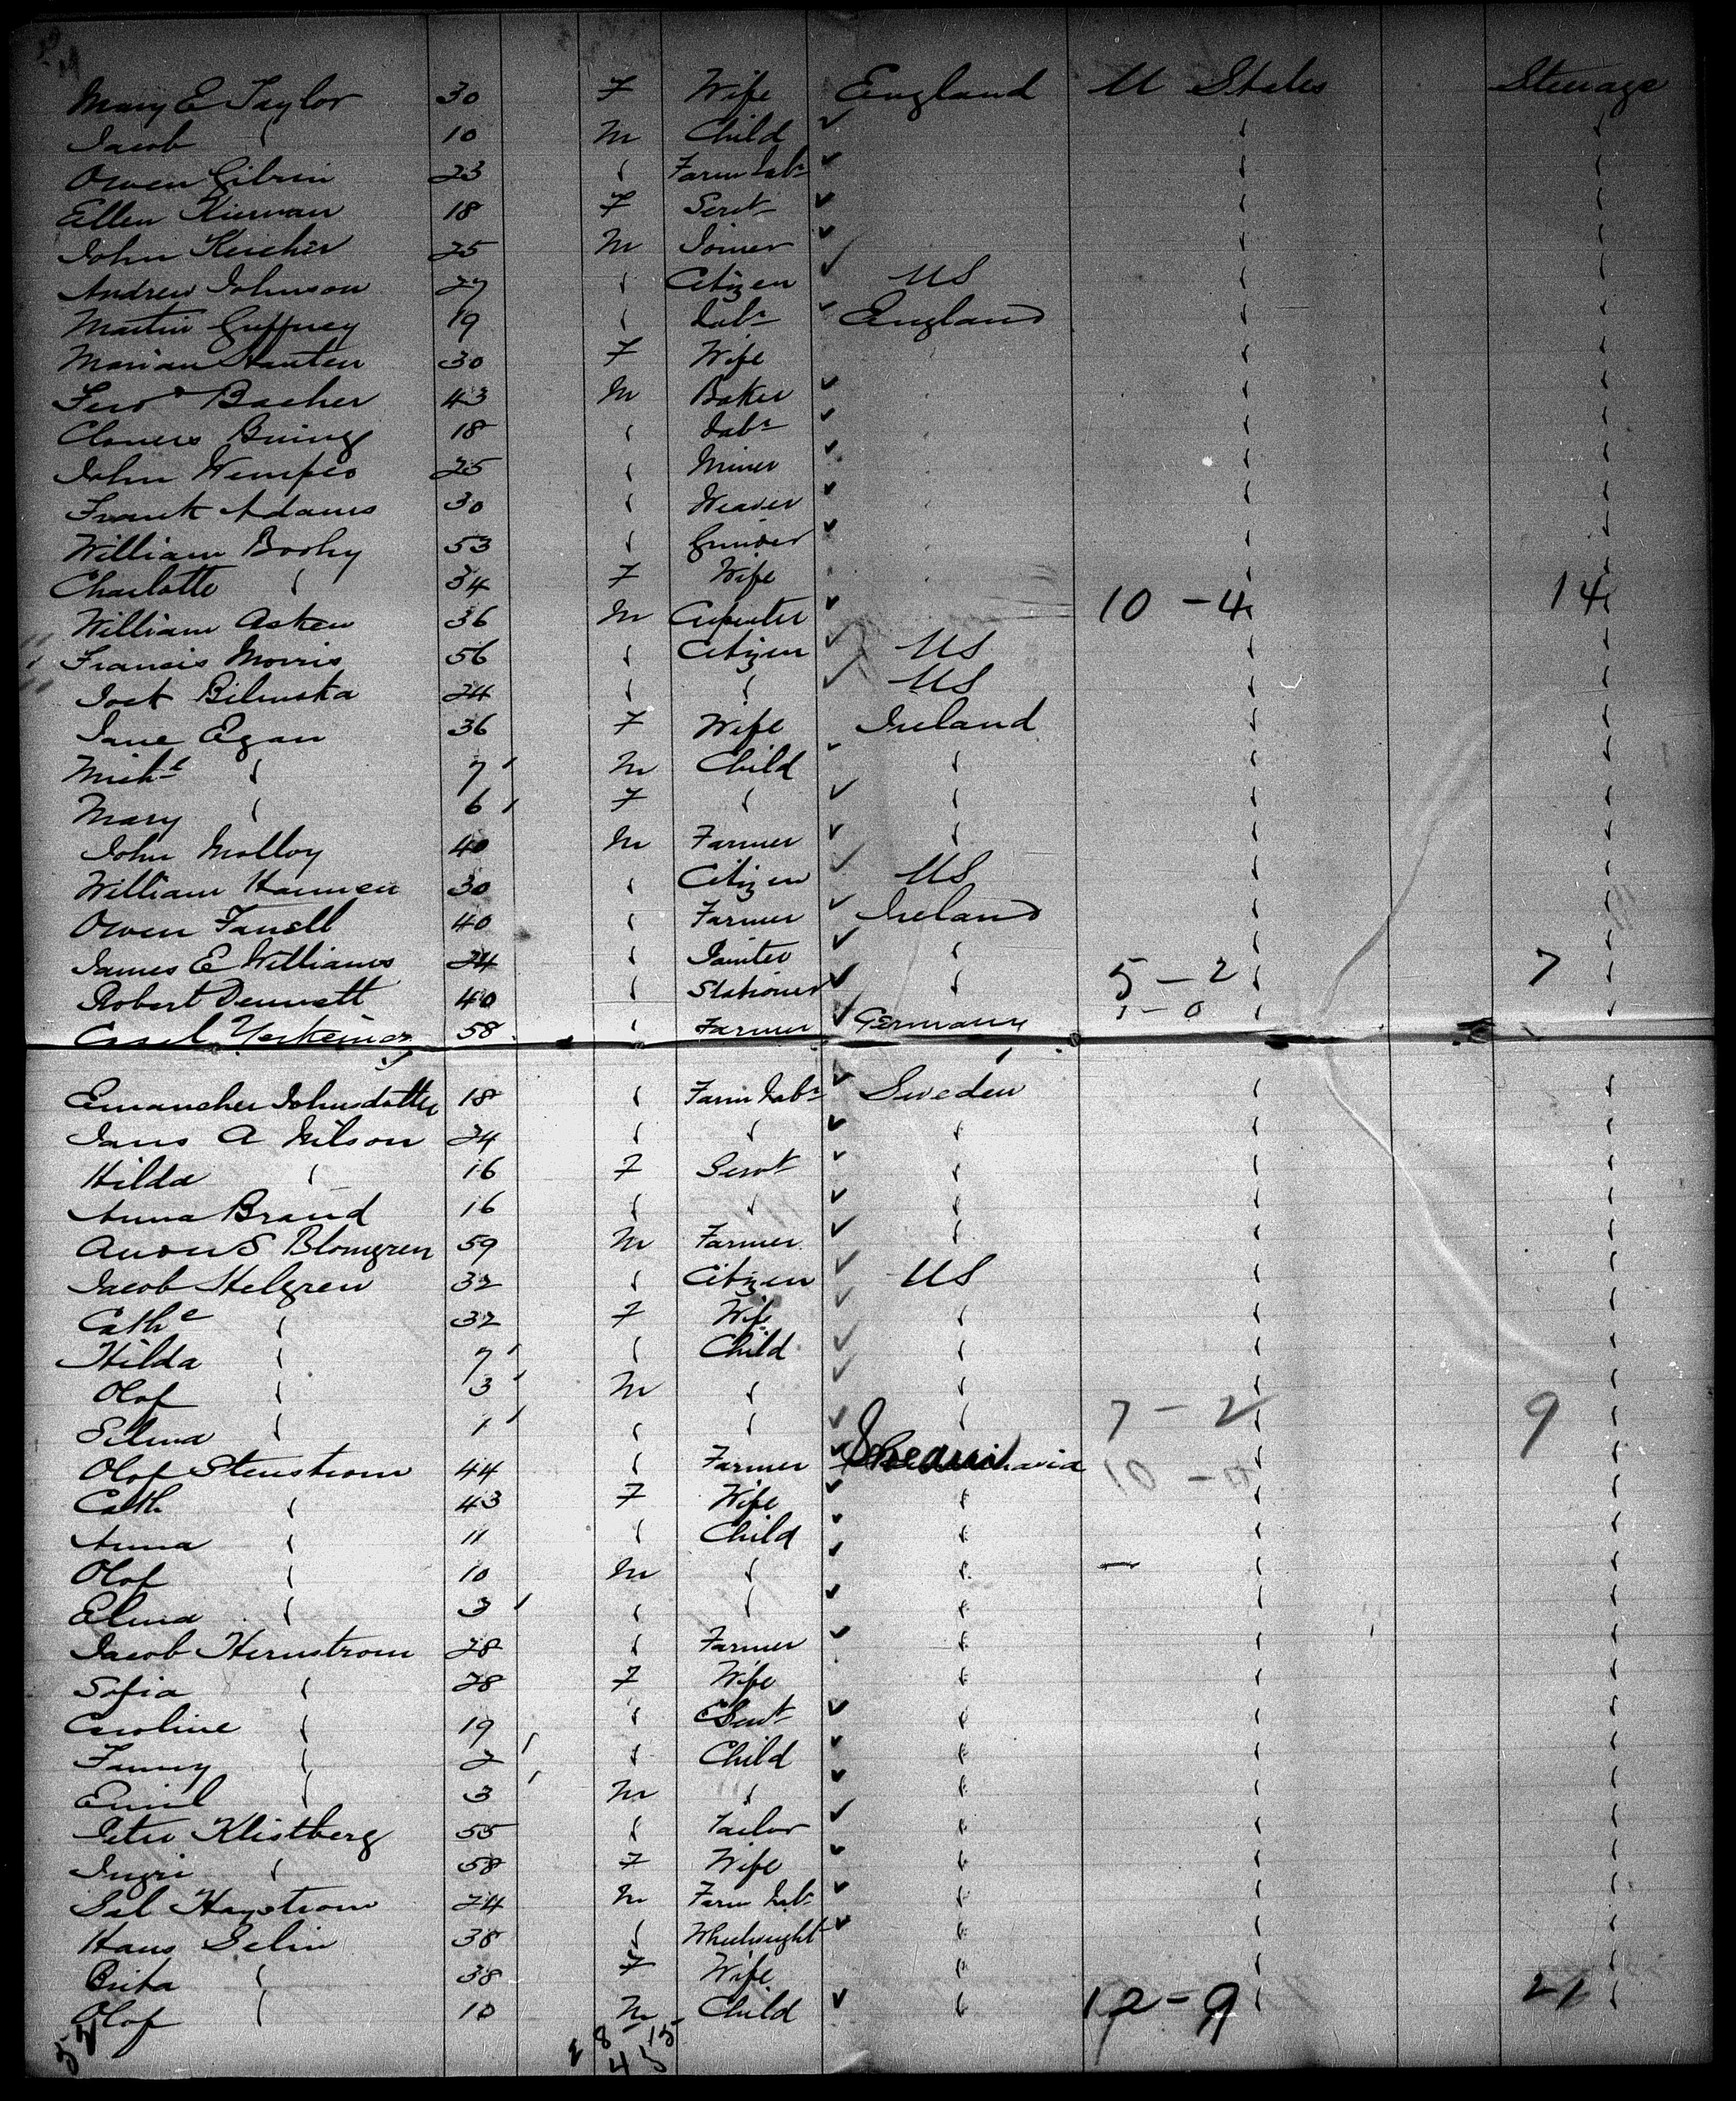 Mary E Taylor 30 F Wife England U States Steerage
Jacob " 10 M Child " "
Owen Gilrin 23 " Farm Labr " "
Ellen Kiernan 18 F Servt " "
John Keicher 25 M Joiner " "
Andrew Johnson 27 " Citizen US " "
Martin Guffney 19 " Labr England " "
Marian Stanten 30 F Wife " "
Ferd Bacher 43 M Baker " "
18 " Labr " "
John 25 " Miner " "
Frank Adams 30 " Weaver " "
William Boohy 53 " Grinder " "
Charlotte " 34 F Wife " "
William Asken 36 M Carpenter 10 - 4 " 14 "
Francis Morris 56 " Citizen US " "
Bilinska 24 " " US " "
Jane Egan 36 F Wife Ireland " "
Michl " 7 M Child " " "
Mary " 6 F " " " "
John Molloy 40 M Farmer " " "
William Hannen 30 " Citizen US " "
Owen Farrell 40 " Farmer Ireland " "
James E Williams 24 " Painter " 5 - 2 " 7 "
Robert Dennett 40 " Stationer " 1 - 0 " "
58 " Farmer Germany
Johnsdotter 18 " Farm Labr Sweden " "
Jans A Nilson 24 " " " " "
Hilda " 16 F Servt " " "
Anna Brand 16 " " " " "
Anders Blomgren 59 M Farmer " " "
Jacob Helgren 32 " Citizen US " "
Cathe " 32 F Wife " " "
Hilda " 7 " Child " " "
Olof " 3 M " " " "
Selma " 1 " " " 7 - 2 " 9 "
Olof Stenstrom 44 " Farmer Sweden 10 - " "
Cath " 43 F Wife " " "
Anna " 11 " Child " " "
Olof " 10 M " " — " "
Elma " 3 " " " " "
Jacob Hernstrom 28 " Farmer " " "
Sofia " 28 F Wife " " "
Caroline " 19 " Servt " " "
Fanny " 2 " Child " " "
Emil " 3 M " " " "
Peter Klistberg 55 " Tailor " " "
Ingri " 58 F Wife " " "
Sal Hagstrom 24 M Farm Labr " " "
Hans Selin 38 " Wheelwright " " "
Brita " 38 F Wife " " "
Olof " 10 M Child " 12 - 9 " 21 "
52 8 15
4 5